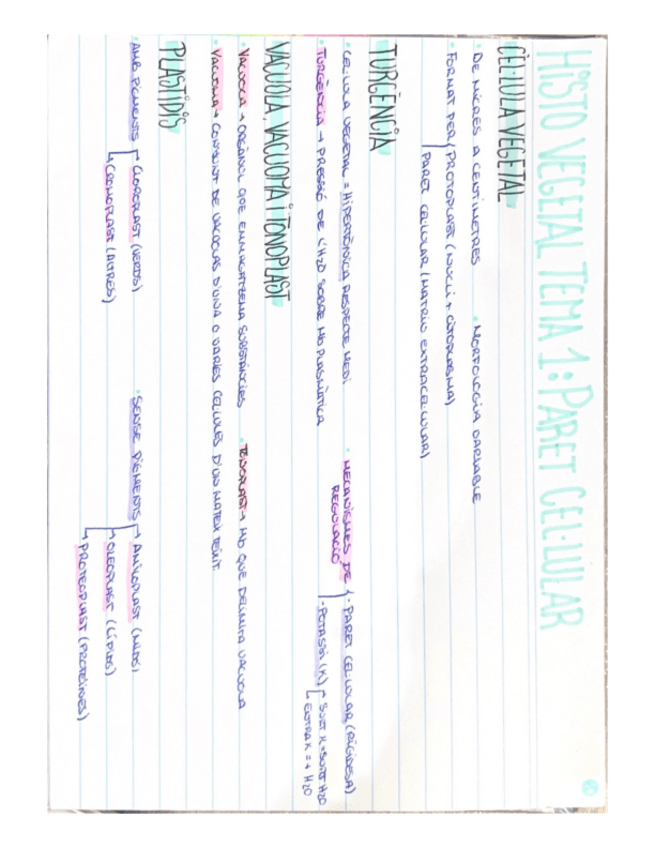 HISTO VEGETAL TEMA 1: PARET CEL·LULAR
CÈL·LULA VEGETAL
· DE MICRES A CENTÍMETRES · MORFOLOGIA VARIABLE
· FORMAT PER PROTOPLAST (NUCLI + CITOPLASMA)
PARET CEL·LULAR (MATRIU EXTRACEL·LULAR)
TURGÈNCIA
· CÈL·LULA VEGETAL = HIPERTÒNICA RESPECTE MEDI · MECANISMES DE REGULACIÓ - PARET CEL·LULAR (RIGIDESA)
· TURGÈNCIA → PRESSIÓ DE L'H2O SOBRE MB PLASMÀTICA - POTASSI (K) SURT K = SURT H2O
ENTRA K = + H2O
VACUOLA, VACUOMA i TONOPLAST
· VACUOLA → ORGÀNUL QUE EMMAGATZEMA SUBSTÀNCIES · TONOPLAST → MB QUE DELIMITA VACUOLA
· VACUOMA → CONJUNT DE VACUOLES D'UNA O VARIES CÈL·LULES D'UN MATEIX TEIXIT.
PLASTIDIS
· AMB PIGMENTS → CLOROPLAST (VERDS) · SENSE PIGMENTS → AMILOPLAST (MIDÓ)
→ CROMOPLAST (ALTRES) → OLEOPLAST (LÍPIDS)
→ PROTEOPLAST (PROTEÏNES)